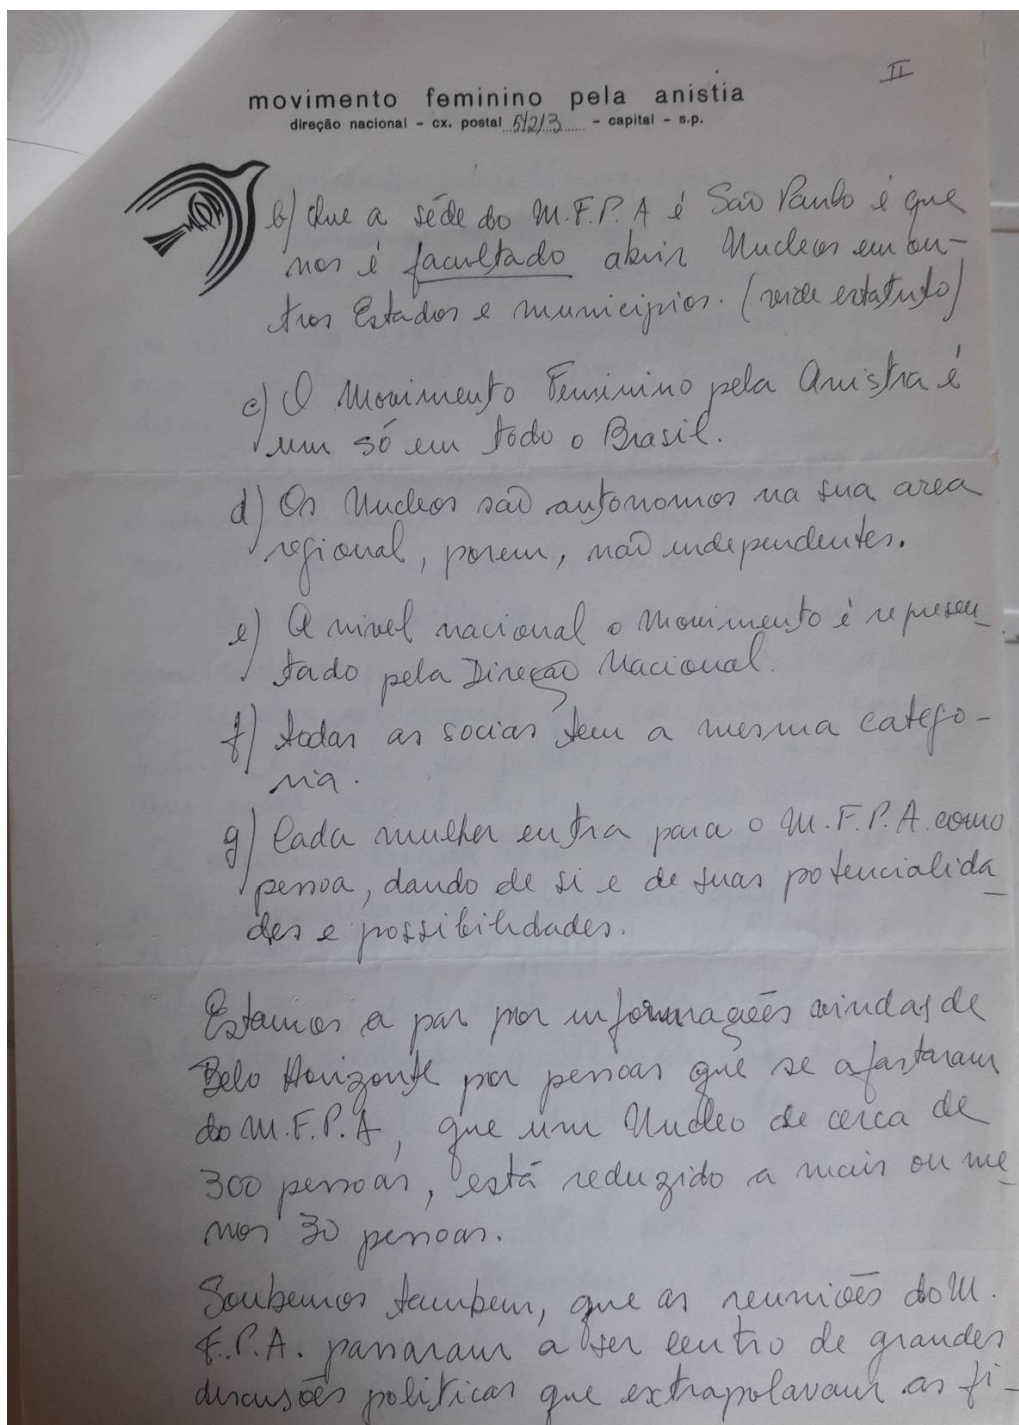 II
movimento feminino pela anistia
direção nacional - cx. postal 5/2/3 - capital - s.p.
MFPA
b) Que a séde do M.F.P.A é São Paulo é que
nos é facultado abrir Nucleos em ou-
tros Estados e municipios. (vide estatuto)
c) O Movimento Feminino pela Anistia é
um só em todo o Brasil.
d) Os Nucleos são autonomos na sua area
regional, porem, não independentes.
e) A nivel nacional o Movimento é represen-
tado pela Direção Nacional.
f) todas as socias tem a mesma catego-
ria.
g) Cada mulher entra para o M.F.P.A. como
pessoa, dando de si e de suas potencialida-
des e possibilidades.
Estamos a par por informações vindas de
Belo Horizonte por pessoas que se afastaram
do M.F.P.A, que um Nucleo de cerca de
300 pessoas, está reduzido a mais ou me-
nos 30 pessoas.
Soubemos tambem, que as reuniões do M.
F.P.A. passaram a ser centro de grandes
discusões politicas que extrapolavam as fi-